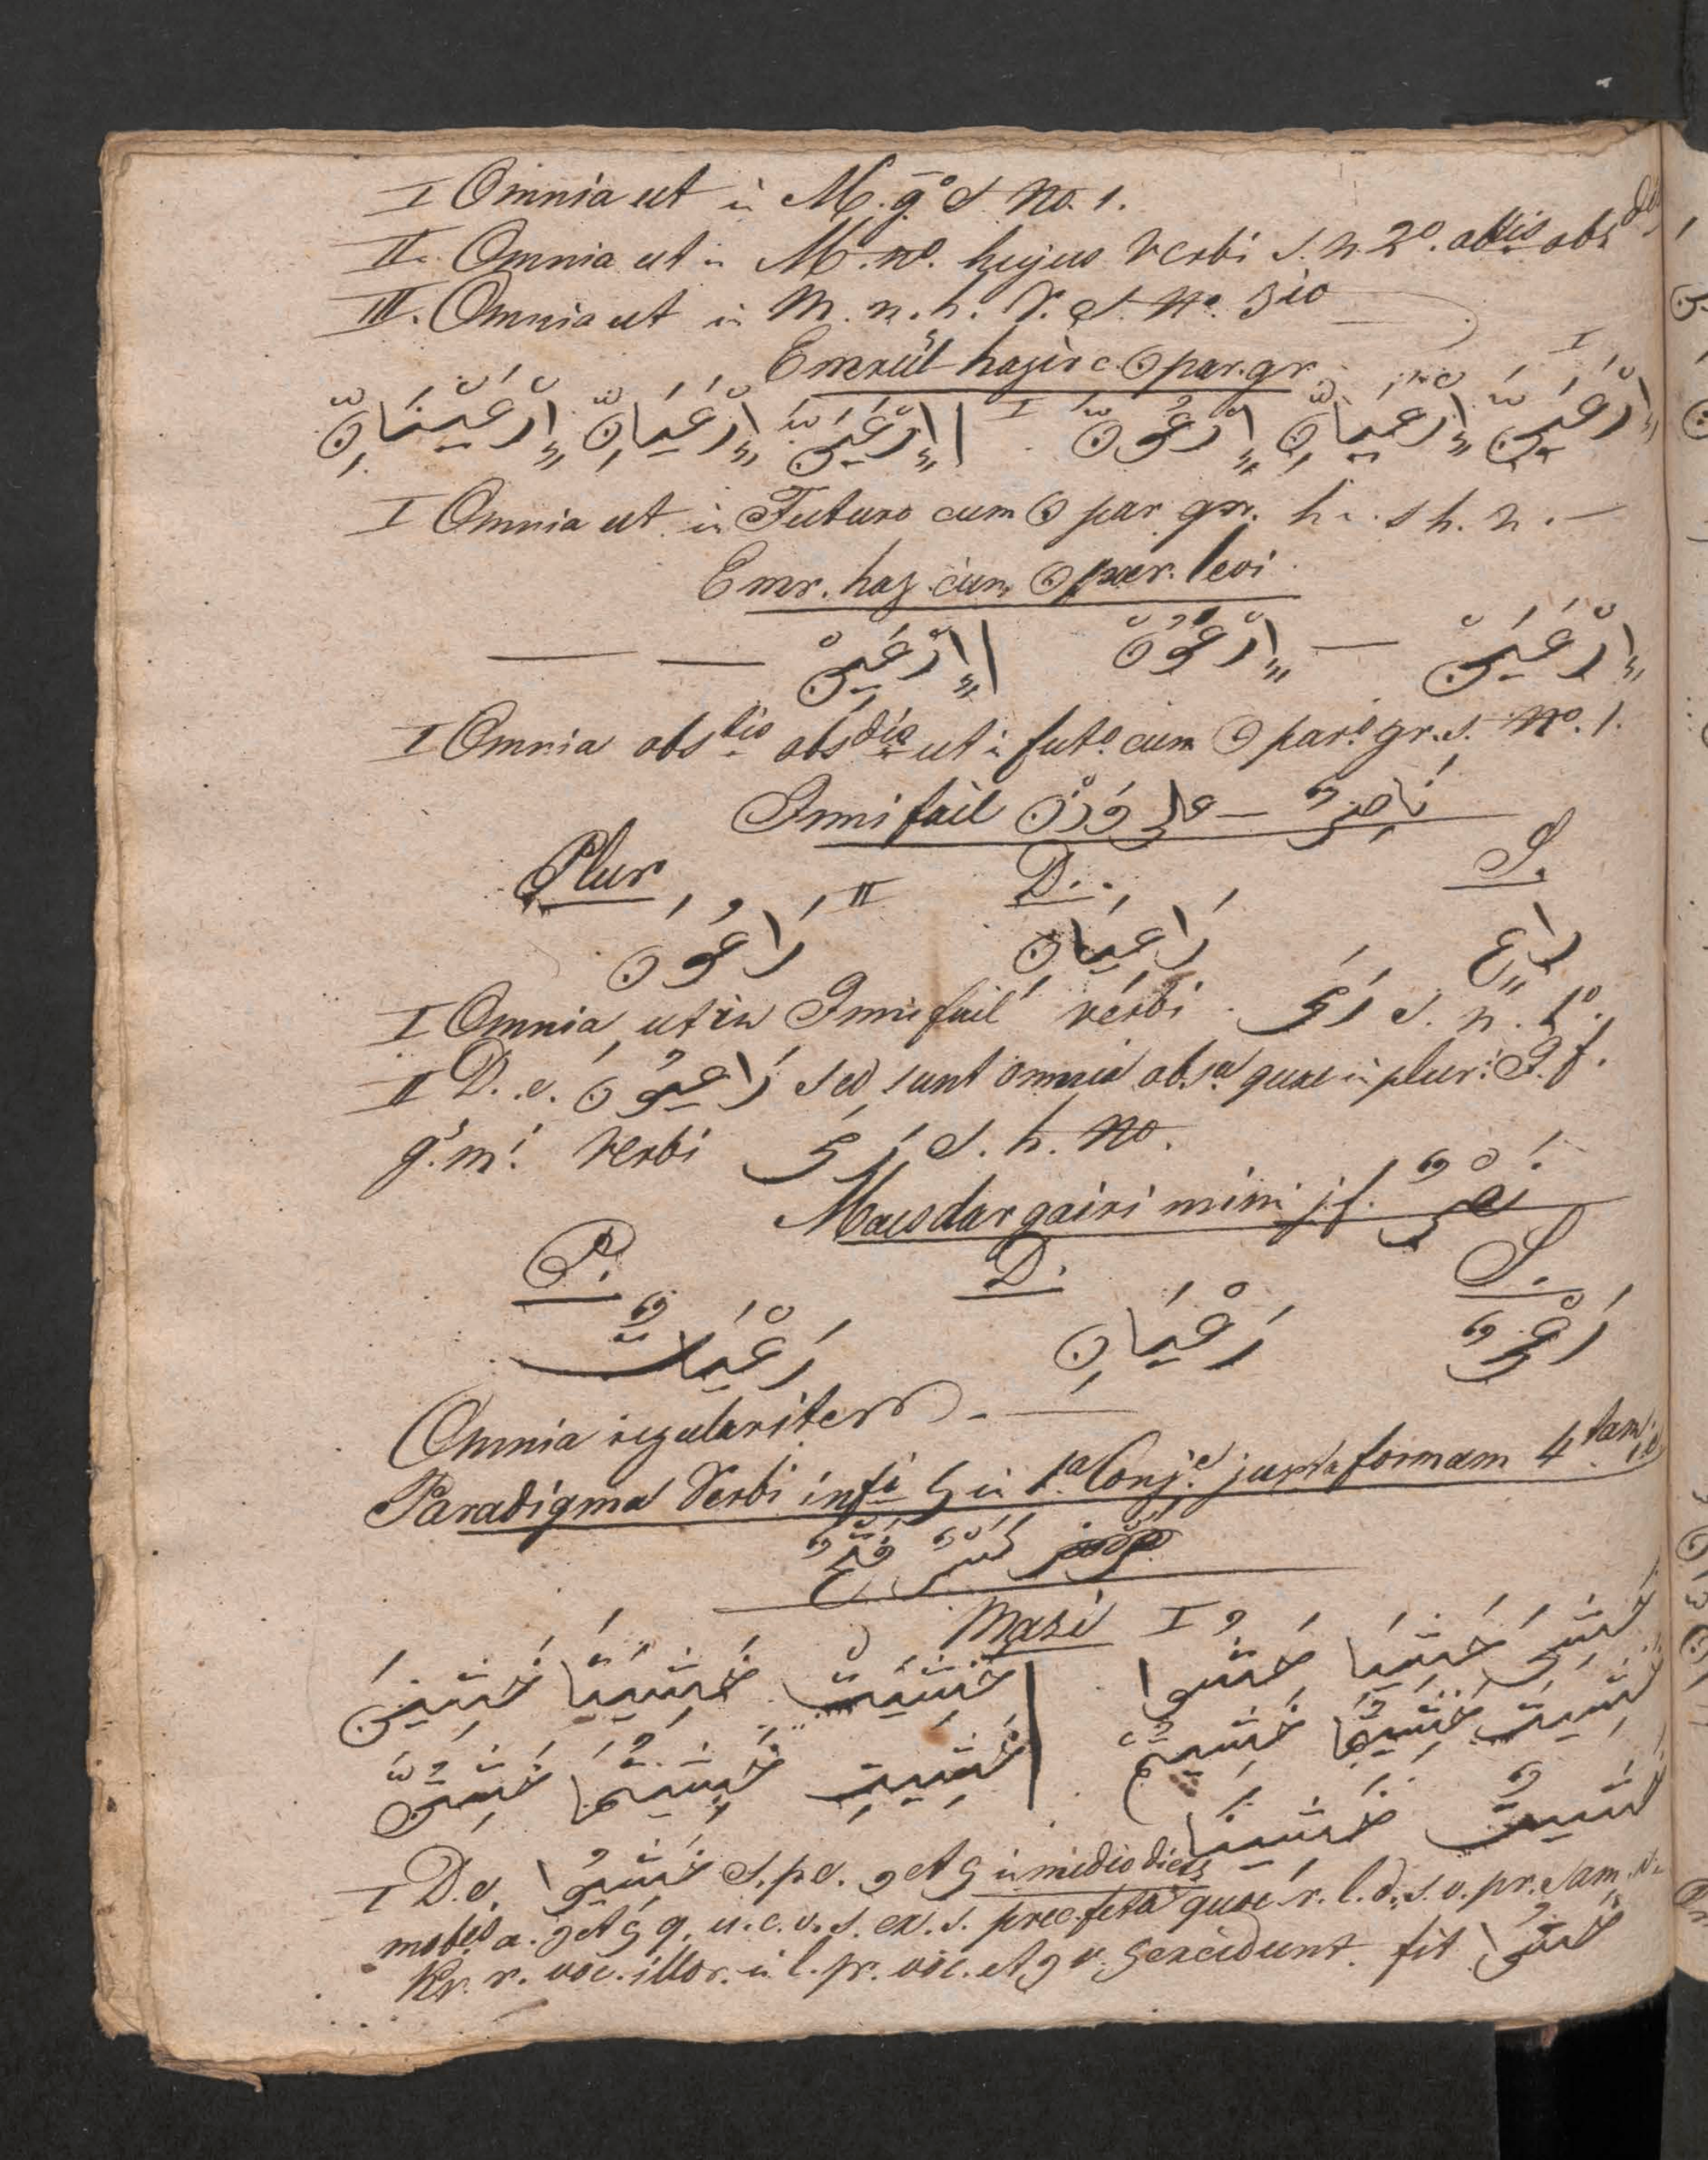 I Omnia ut in M. g.o S. No. 1.
II. Omnia ut in M. no. hujus Verbi S. n. 2o. abtis abs dis
III. Omnia ut in M. n. h. V. S. No. 3io
Emrül hazir c. ن par. gr.
اِرْعَيَنَّ اِرْعَيَانِّ اِرْعَوُنَّ I | اِرْعَيِنَّ اِرْعَيَانِّ اِرْعَيْنَانِّ
I Omnia ut in Futuro cum ن par. gr. h. s h. n. —
Emr. haz. cum ن par. levi
اِرْعَيَنْ — اِرْعَوُنْ | اِرْعَيِنْ — —
I Omnia abstis absdis ut in futo. cum ن paro gr. S. No. 1.
Ismi fail على وزن — نَاصِرٌ
S. D. Plur
رَاعٍ رَاعِيَانِ II رَاعُونَ
I Omnia ut in Ismi fail verbi رَمَى S. n. 1o.
II D. e. رَاعِيُونَ sed sunt omnia obsa quae in plur: I. f.
g. m. Verbi رَمَى S. h. No.
Masdar gairi mimi j. f. نَصْرٌ
S. D. P.
رَعْيٌ رَعْيَانِ رَعْيَاتٌ
Omnia regulariter —
Paradigma Verbi infi ى in 1a Conje juxta formam 4tam
كَسْرٌ فَتْحٌ
Mazi I
خَشِيَ خَشِيَا خَشُوا | خَشِيَتْ خَشِيَتَا خَشِينَ
خَشِيتَ خَشِيتُمَا خَشِيتُمْ | خَشِيتِ خَشِيتُمَا خَشِيتُنَّ
خَشِيتُ خَشِينَا
I D. e. خَشِيُوا S. p. e. و et ى in medio dictis
mobis a. و et ى q. u. c. v. s. ex. s. prec. feta quae r. l. d. s. v. pr. sam.
Kr. r. voc. illor. in l. pr. voc. et و v. ى excidunt. fit خَشُوا